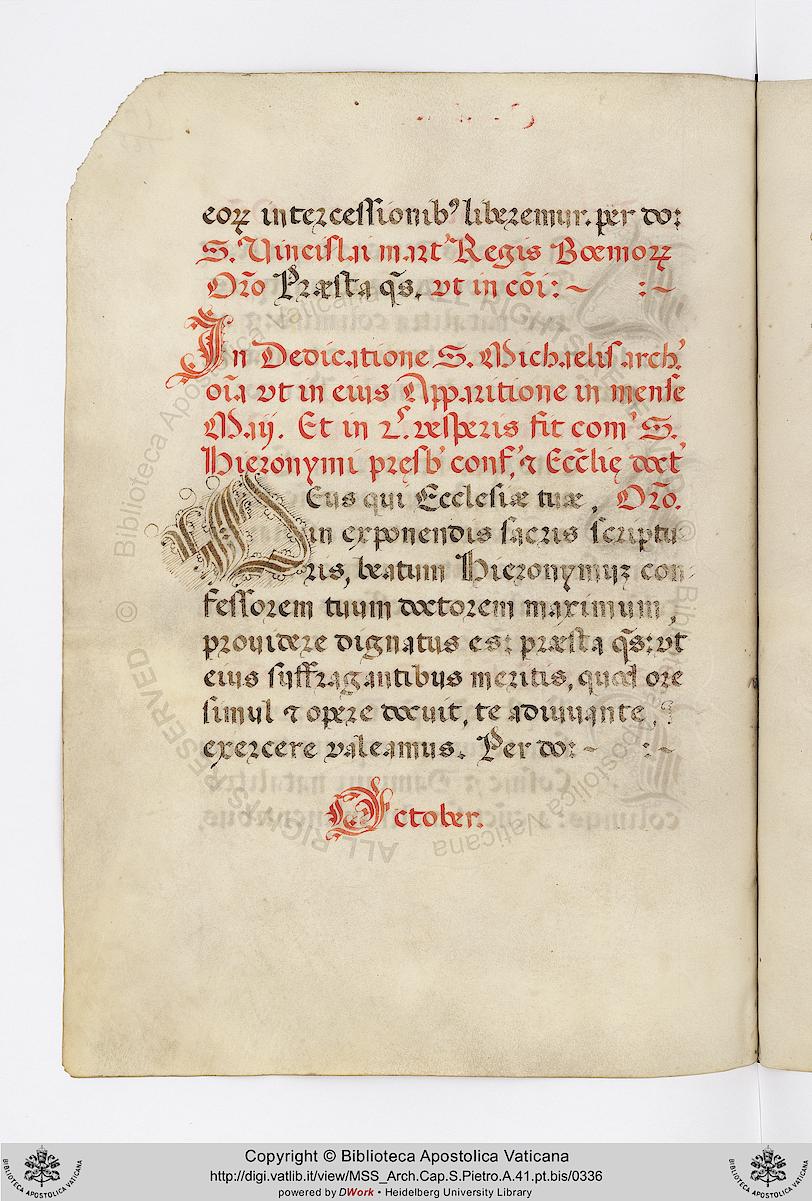 eoꝝ intercessionib⁹ liberemur. per do:
S. Vincislai mart. Regis Bœmoꝝ
Orõ Præsta q̃s. vt in cõi: ~ : ~
In Dedicatione S. Michaelis arch.
oĩa vt in eius Apparitione in mense
Maij. Et in 2.ˢ vesperis fit com̃ S.
Hieronymi pręsb. conf. ⁊ Eccl̃ię doct
Deus qui Ecclesiæ tuæ, Orõ.
in exponendis sacris scriptu
ris, beatum Hieronymuꝫ con
fessorem tuum doctorem maximum,
prouidere dignatus es: præsta q̃s: vt
eius suffragantibus meritis, quod ore
simul ⁊ opere docuit, te adiuuante, ⁊
exercere valeamus. Per do: ~ : ~
October.
ALL RIGHTS RESERVED © Biblioteca Apostolica Vaticana
Copyright © Biblioteca Apostolica Vaticana
http://digi.vatlib.it/view/MSS_Arch.Cap.S.Pietro.A.41.pt.bis/0336
powered by DWork • Heidelberg University Library
BIBLIOTECA APOSTOLICA VATICANA
BIBLIOTECA APOSTOLICA VATICANA